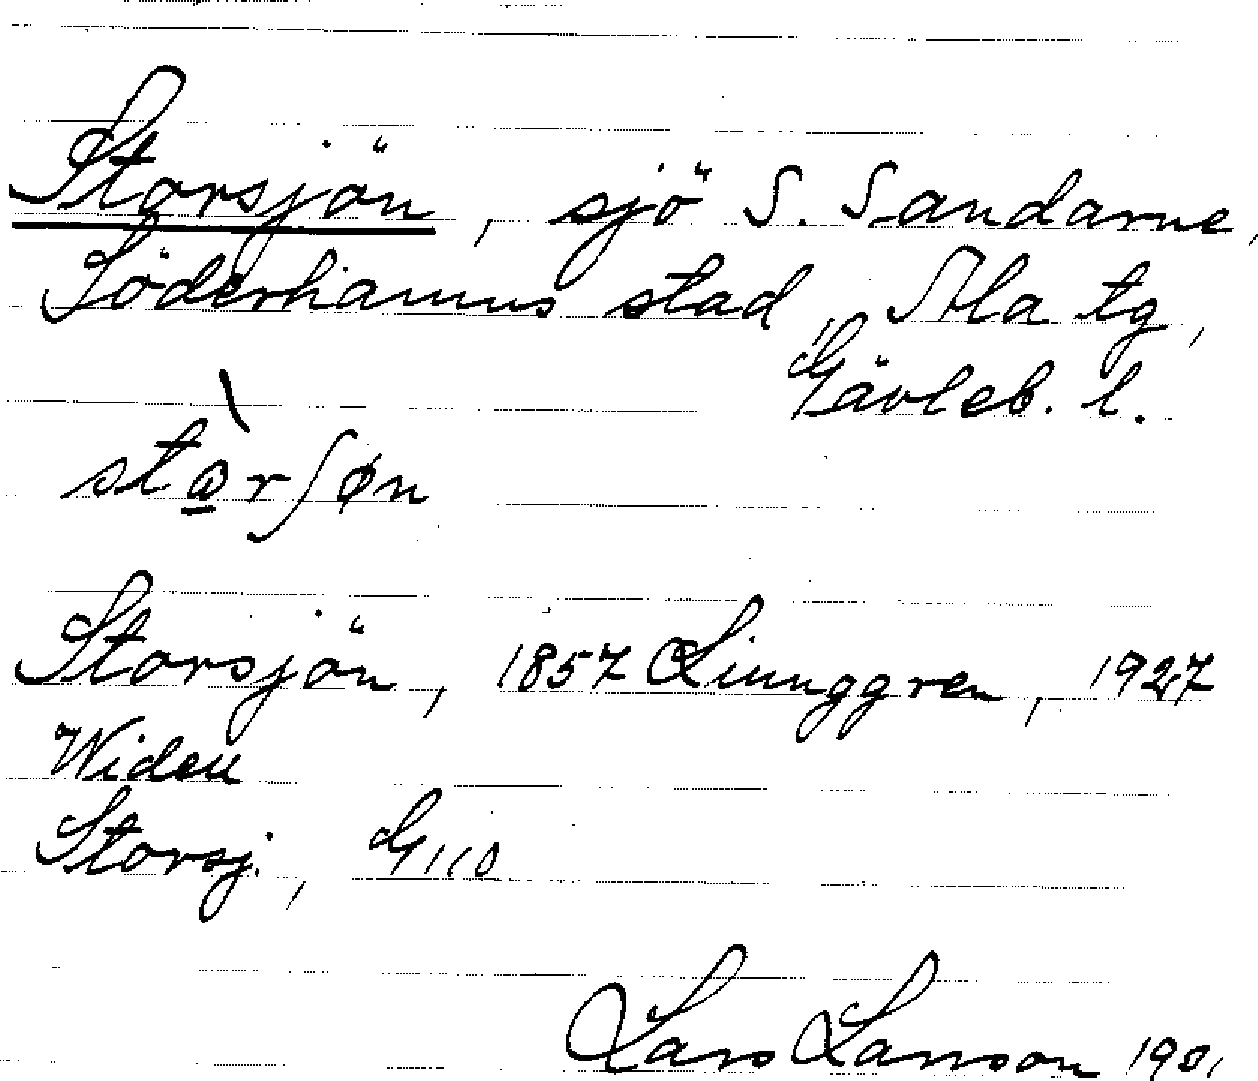 Storsjön, sjö S. Sandarne,
Söderhamns stad, Ala tg,
Gävleb. l.
stɷ̀rʃøn
Storsjön, 1857 Liunggren, 1927
Widen
Storsj., G110
Lars Larsson 1901